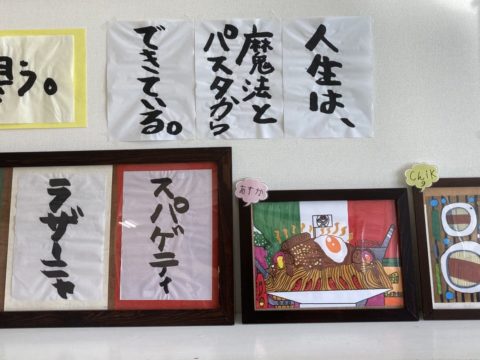 人生は、
魔法と
パスタから
できている。
う。
スパゲティ
ラザーニャ
あすか
Chik